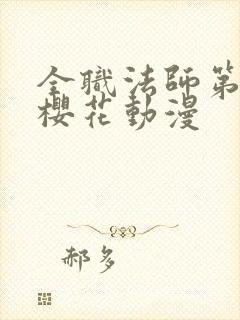 全職法師第
櫻花動漫
郝多